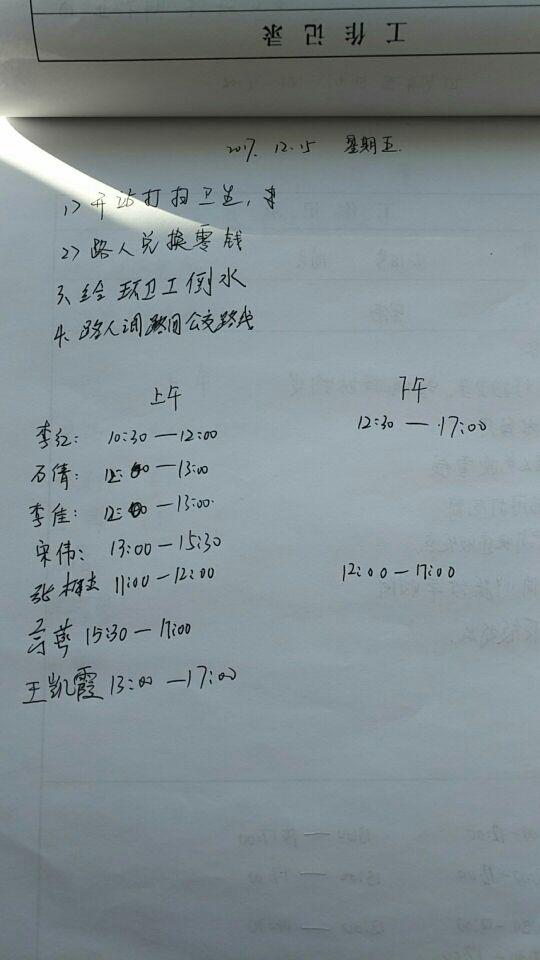 工作记录
2017.12.15 星期五.
1> 开站打扫卫生,
2> 路人兑换零钱
3、给环卫工倒水
4、路人问路问公交路线
上午 下午
李红: 10:30—12:00 12:30—17:00
石倩: 12:00—13:00
李佳: 12:00—13:00
宋伟: 13:00—15:30
张 11:00—12:00 12:00—17:00
15:30—17:00
王凯霞 13:00—17:00